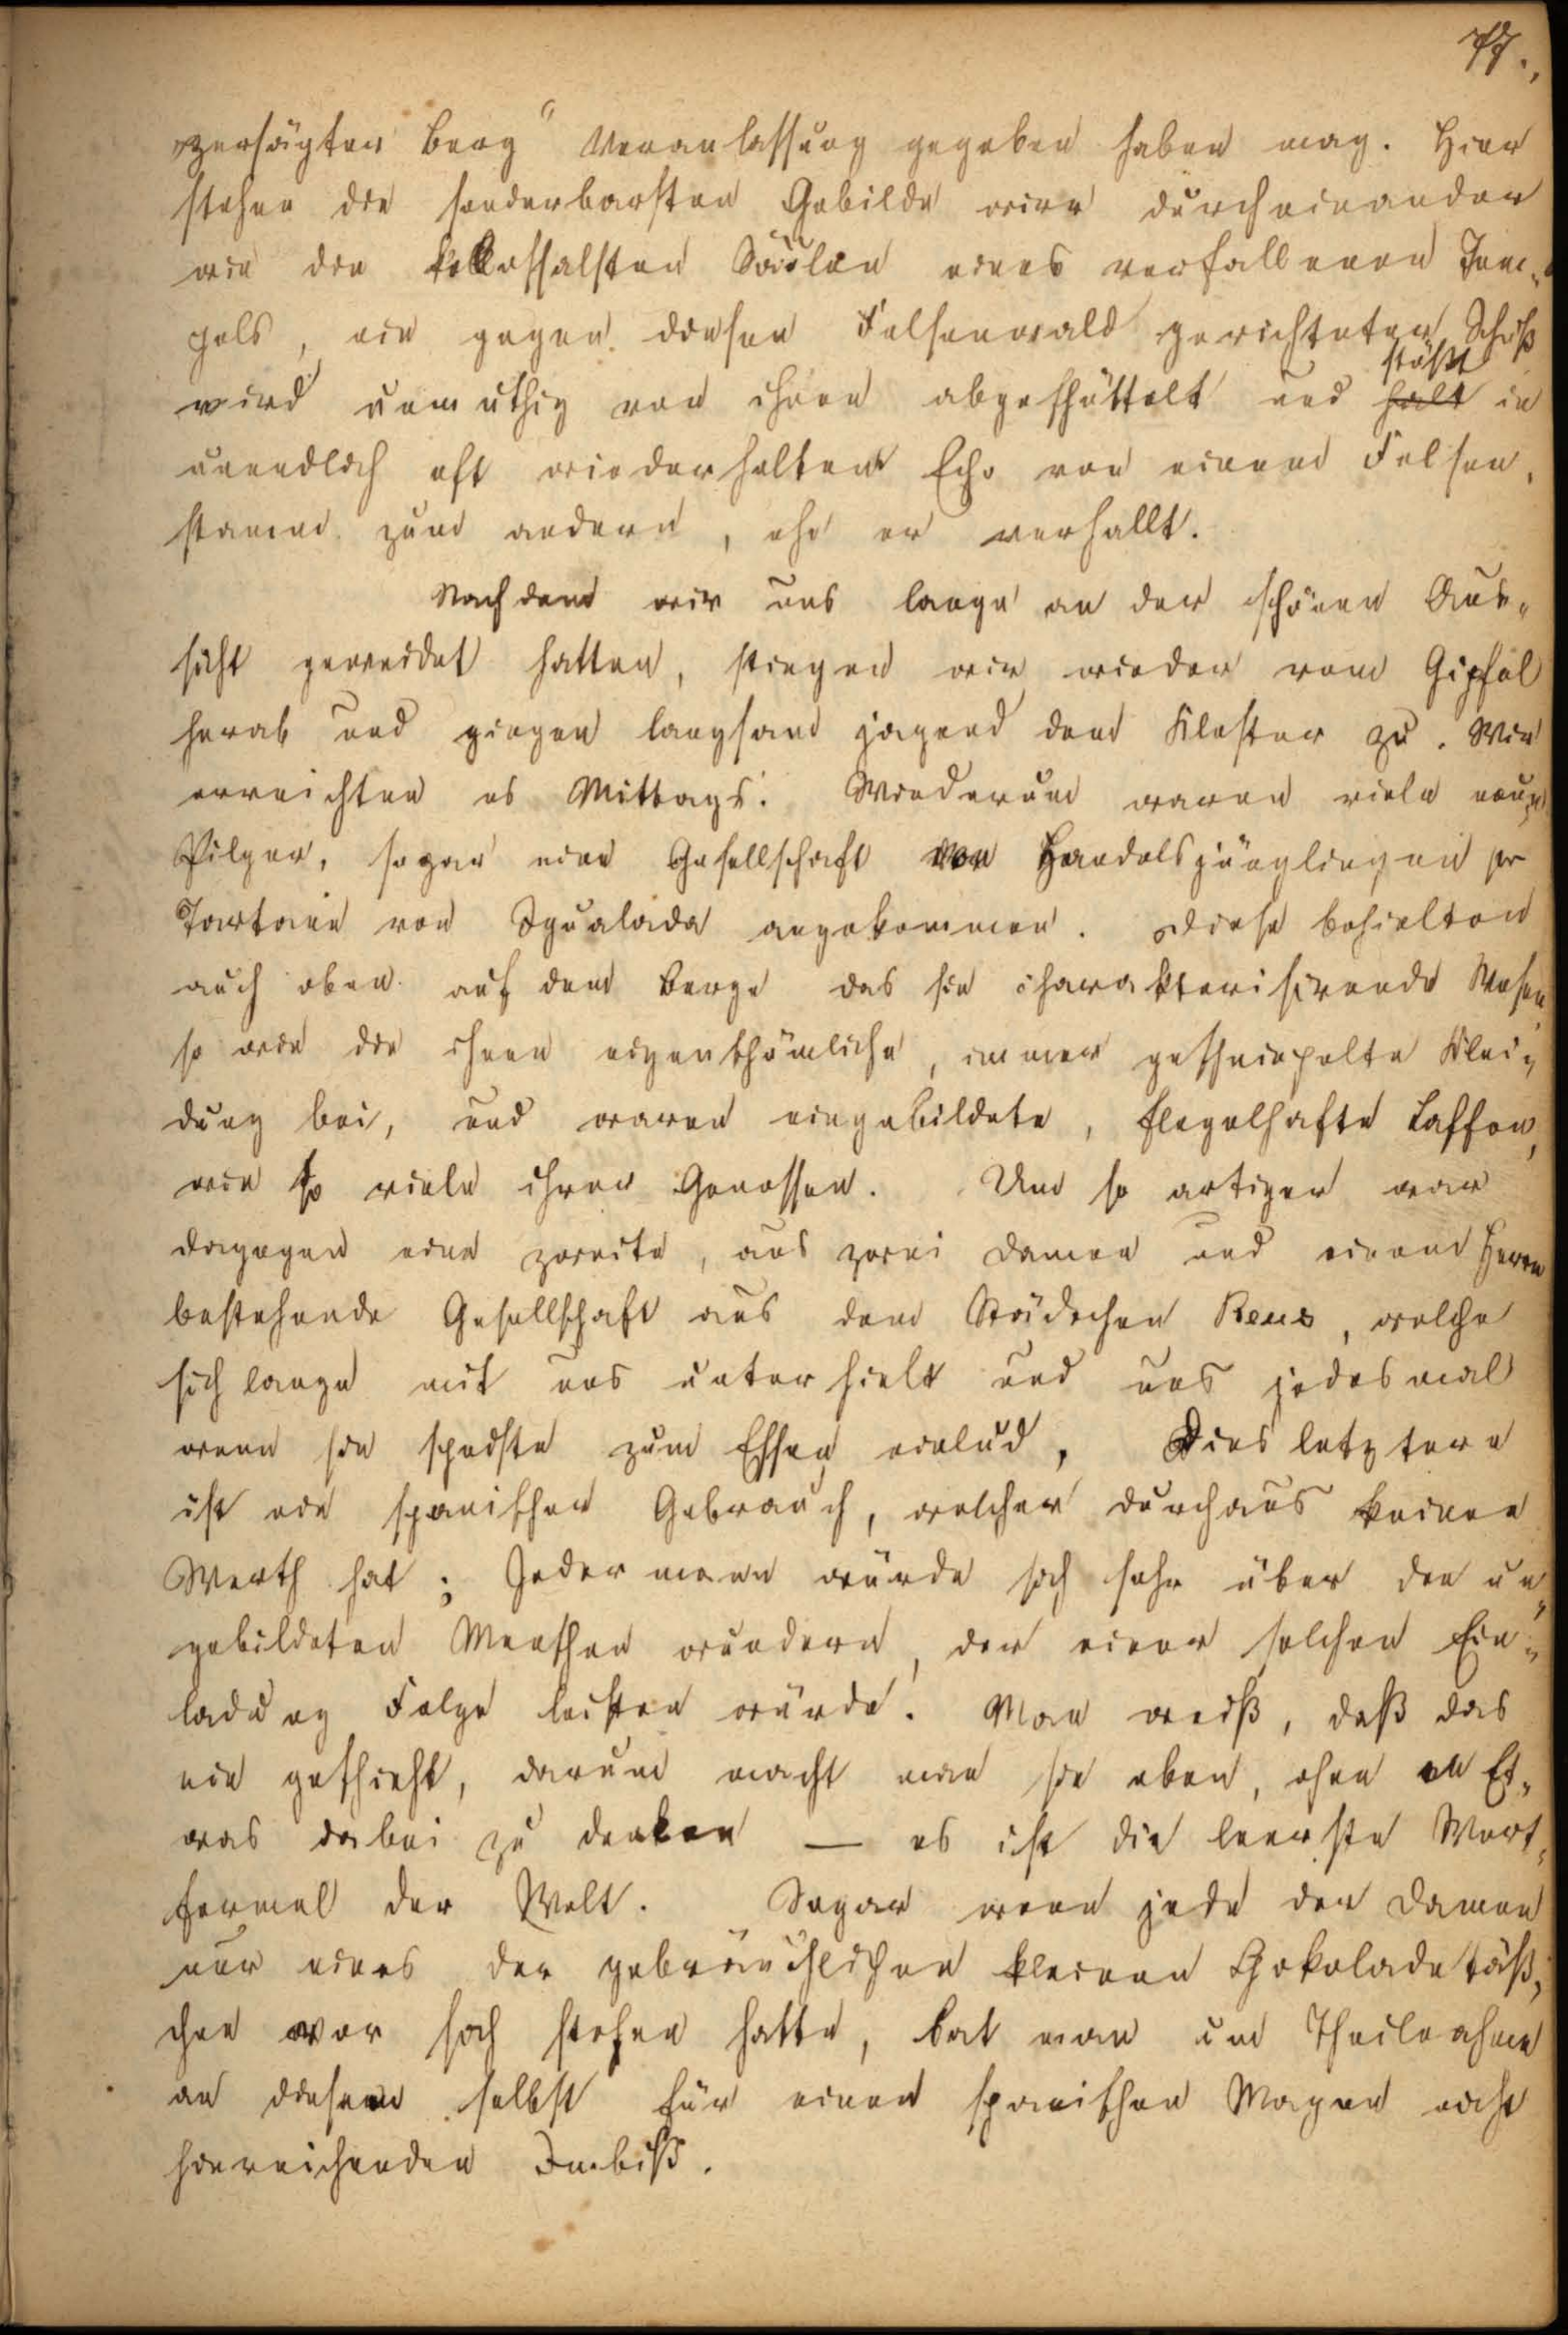 77.,
„zersägter Berg“ Veranlassung gegeben haben mag. Hier
stehen die sonderbarsten Gebilde wirr durcheinander
wie die kollossalsten Säulen eines verfallenen Tem„
pels, ein gegen diesen Felsenwald gerichteter Schuß
stößt
wird unmuthig von ihnen abgeschüttelt und halt in
unendlich oft wiederhaltem Echo von einem Felsen„
stamm zum andern, ehe er verhallt.
Nachdem wir uns lange an der schönen Aus„
sicht geweidet hatten, stiegen wir wieder vom Gipfel
herab und gingen langsam jagend dem Kloster zu. Wir
erreichten es Mittags. Wiederum waren viele neue
Pilger, sogar eine Gesellschaft von Handelsjünglingen pr
Tartane von Igualada angekommen. Diese behielten
auch oben auf dem Berge das sie charakterisirende Wesen
so wie die ihnen eigenthümliche, immer geschniegelte Klei„
dung bei, und waren eingebildete, flegelhafte Laffen,
wie so viele ihrer Genossen. Um so artiger war
dagegen eine zweite, aus zwei Damen und einem Herrn
bestehende Gesellschaft aus dem Städtchen Reus, welche
sich lange mit uns unterhielt und uns jedesmal
wenn sie speiste zum Essen einlud, Dies letztere
ist ein spanischer Gebrauch, welcher durchaus keinen
Werth hat; Jedermann würde sich sehr über den un„
gebildeten Menschen wundern, der einer solchen Ein„
ladung Folge leisten würde. Man weiß, daß das
nie geschieht, darum macht man sie eben, ohne Et„
was dabei zu denken — es ist die leerste Wort„
formel der Welt. Sogar wenn jede der Damen
nur eines der gebräuchlichen kleinen Chokoladetäß„
chen vor sich stehen hatte, bat man um Theilnahme
an diesem selbst für einen spanischen Magen nicht
hinreichenden Imbiß.